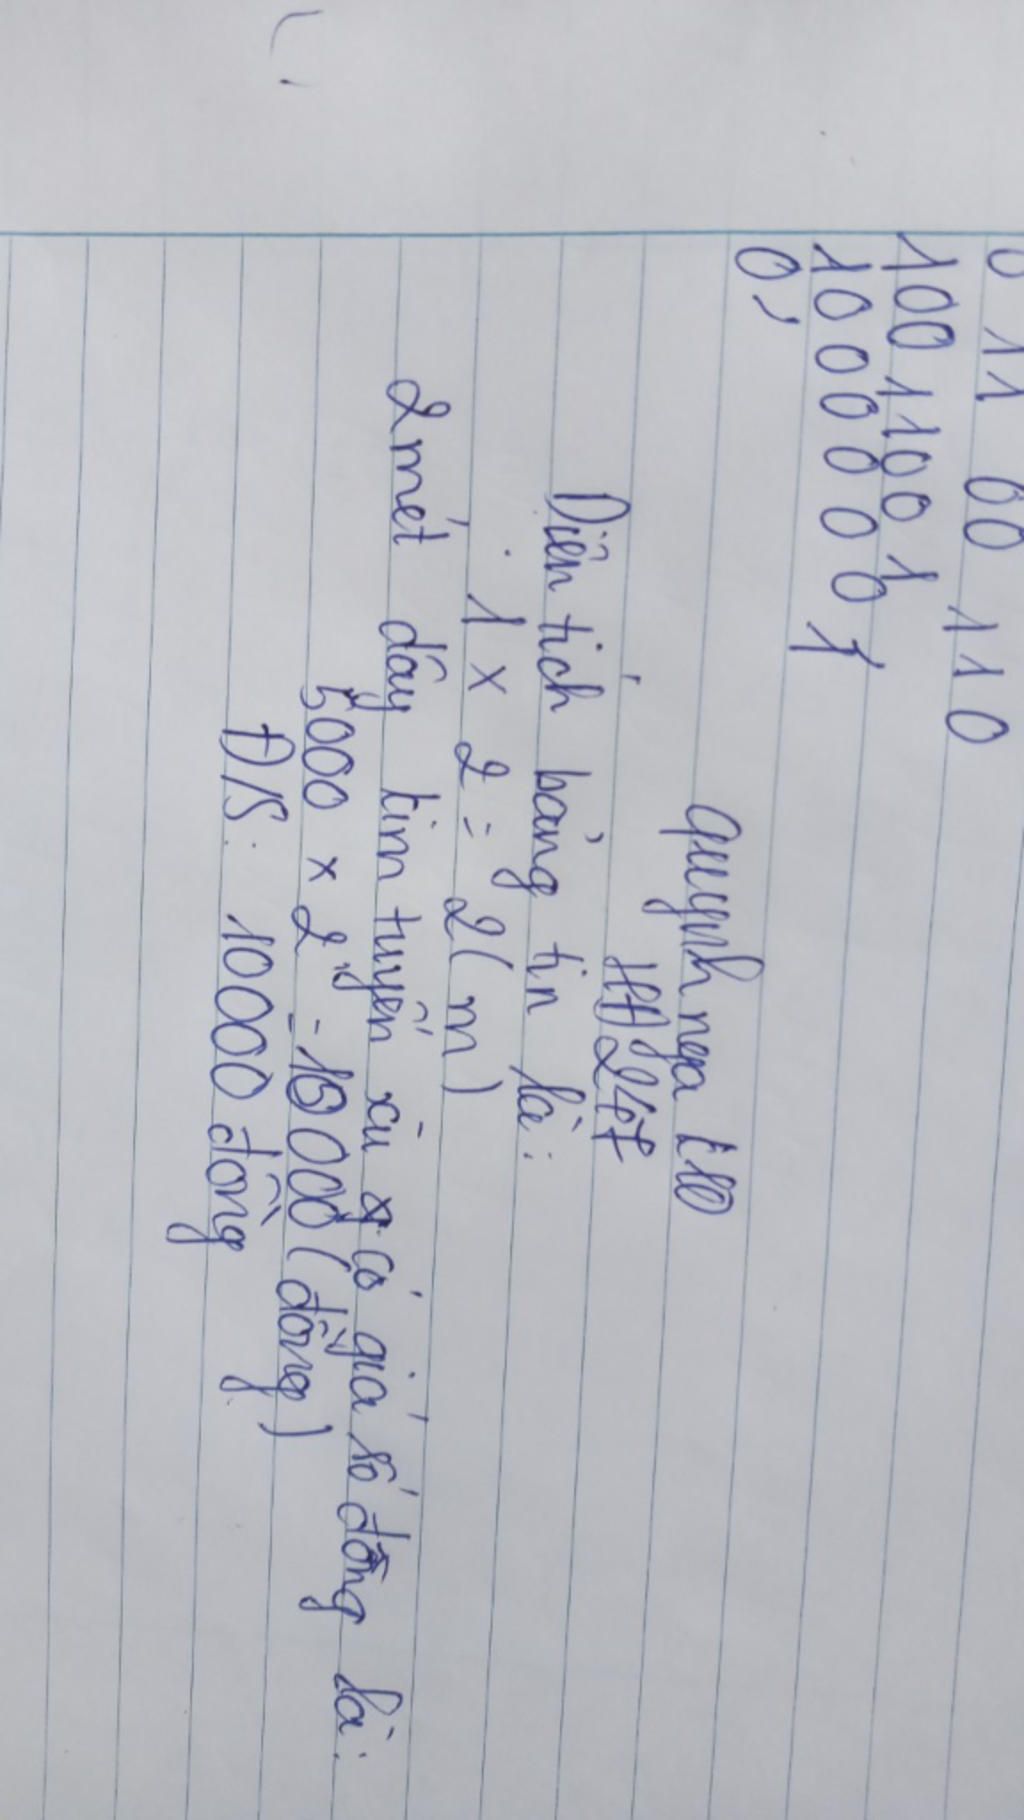 0 11 00 110
100 1100 1
10 0 0 0 0 0 1
0,
quỳnh nga
HA247
Diện tích bảng tin là:
1 x 2 = 2 ( m )
2 mét dây kim tuyến xù có giá số đồng là:
5000 x 2 = 10 000 ( đồng )
Đ/S: 10000 đồng